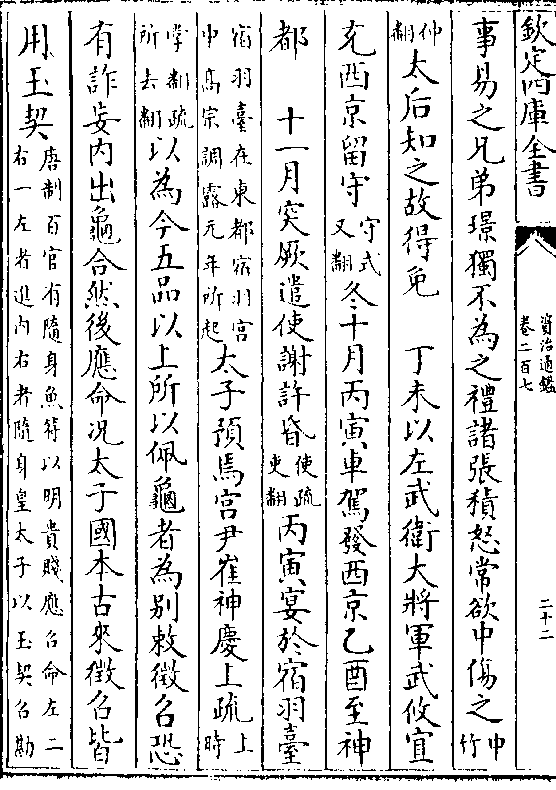 欽定四庫全書
資治通鑑
卷二百七
二十二
事易之兄弟璟獨不為之禮諸張積怒常欲中傷之中竹
仲翻太后知之故得免　丁未以左武衛大將軍武攸宜
充西京留守守式又翻冬十月丙寅車駕發西京乙酉至神
都　十一月突厥遣使謝許昏使疏吏翻丙寅宴於宿羽臺
宿羽臺在東都宿羽宮中高宗調露元年所起太子預焉宮尹崔神慶上疏上時
掌翻疏所去翻以為今五品以上所以佩龜者為別敕徵召恐
有詐妄內出龜合然後應命況太子國本古來徵召皆
用玉契唐制百官有隨身魚符以明貴賤應召命左二右一左者進內右者隨身皇太子以玉契召勘